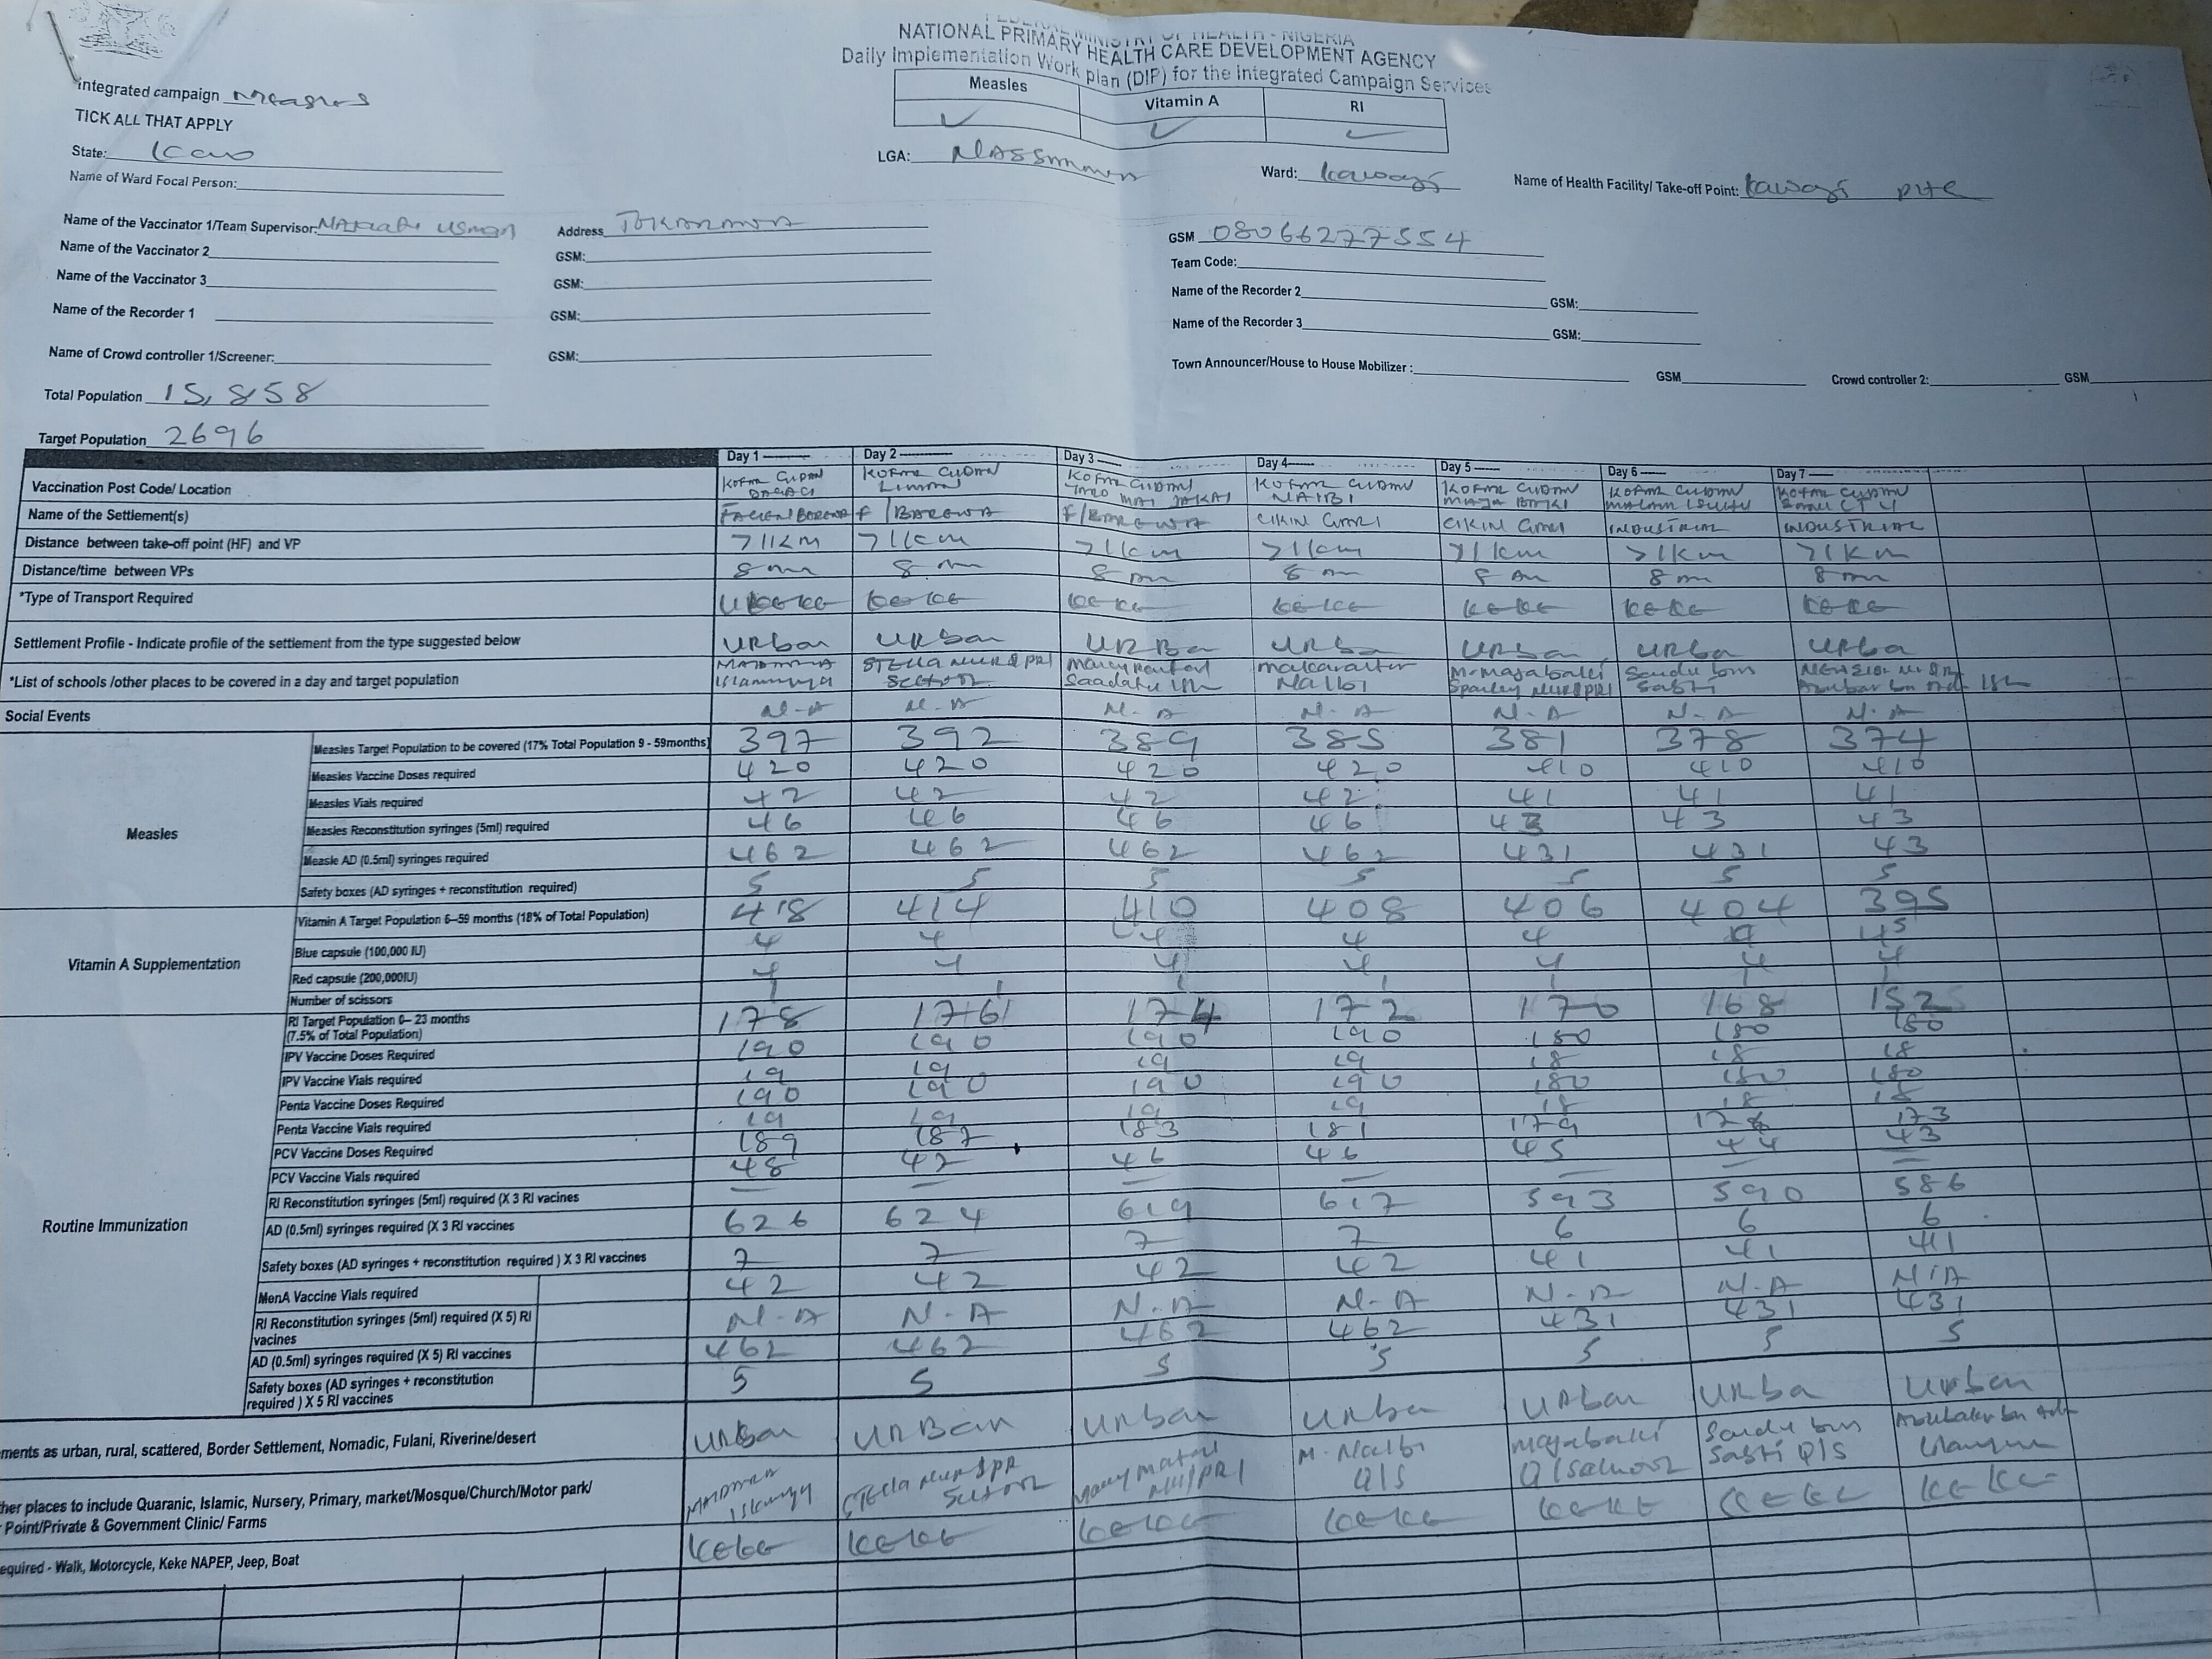 FEDERAL MINISTRY OF HEALTH - NIGERIA
NATIONAL PRIMARY HEALTH CARE DEVELOPMENT AGENCY
Daily Implementation Work plan (DIP) for the Integrated Campaign Services
Integrated campaign Measles
Measles Vitamin A RI
✓ ✓ ✓
TICK ALL THAT APPLY
State: Kano LGA: Nassarawa Ward: Kawaji Name of Health Facility/ Take-off Point: Kawaji PHC
Name of Ward Focal Person:
Name of the Vaccinator 1/Team Supervisor: Usman Address GSM 08066277554
Name of the Vaccinator 2 GSM: Team Code:
Name of the Vaccinator 3 GSM: Name of the Recorder 2 GSM:
Name of the Recorder 1 GSM: Name of the Recorder 3 GSM:
Name of Crowd controller 1/Screener: GSM: Town Announcer/House to House Mobilizer : GSM Crowd controller 2: GSM
Total Population 15,858
Target Population 2696
Day 1 Day 2 Day 3 Day 4 Day 5 Day 6 Day 7
Vaccination Post Code/ Location KOFAR GIDAN DAGACI KOFAR GIDAN LIMAN KOFAR GIDAN KOFAR GIDAN NAIBI KOFAR GIDAN KOFAR GIDAN KOFAR GIDAN
Name of the Settlement(s) F/BAREWA F/BAREWA CIKIN GARI CIKIN GARI INDUSTRIAL INDUSTRIAL
Distance between take-off point (HF) and VP >1km >1km >1km >1km >1km >1km >1km
Distance/time between VPs 8 8 8 8 8 8 8
*Type of Transport Required KEKE KEKE KEKE KEKE KEKE KEKE KEKE
Settlement Profile - Indicate profile of the settlement from the type suggested below URban URban URBan URban URban URba URba
*List of schools /other places to be covered in a day and target population Islamiyya STElla NUR & PRI School Saadatu Naibi
Social Events N-A N-A N-A N-A N-A N-A N-A
Measles
Measles Target Population to be covered (17% Total Population 9 - 59months) 397 392 389 385 381 378 374
Measles Vaccine Doses required 420 420 420 420 410 410 410
Measles Vials required 42 42 42 42 41 41 41
Measles Reconstitution syringes (5ml) required 46 46 46 46 43 43 43
Measle AD (0.5ml) syringes required 462 462 462 462 431 431 43
Safety boxes (AD syringes + reconstitution required) 5 5 5 5 5 5 5
Vitamin A Supplementation
Vitamin A Target Population 6–59 months (18% of Total Population) 418 414 410 408 406 404 395
Blue capsule (100,000 IU) 4 4 4 4 4
Red capsule (200,000IU) 4 4 4 4 4 4 4
Number of scissors 1 1 1 1 1 1 1
Routine Immunization
RI Target Population 0– 23 months (7.5% of Total Population) 178 176 174 172 170 168 152
IPV Vaccine Doses Required 190 190 190 190 180 180 180
IPV Vaccine Vials required 19 19 19 19 18 18 18
Penta Vaccine Doses Required 190 190 190 190 180 180 180
Penta Vaccine Vials required 19 19 19 19 18 18 18
PCV Vaccine Doses Required 189 187 183 181 179 178 173
PCV Vaccine Vials required 48 42 46 46 45 44 43
RI Reconstitution syringes (5ml) required (X 3 RI vacines — — — — — — —
AD (0.5ml) syringes required (X 3 RI vaccines 626 624 619 617 593 590 586
Safety boxes (AD syringes + reconstitution required ) X 3 RI vaccines 7 7 7 7 6 6 6
MenA Vaccine Vials required 42 42 42 42 41 41 41
RI Reconstitution syringes (5ml) required (X 5) RI vacines N-A N-A N-A N-A N-A N-A N/A
AD (0.5ml) syringes required (X 5) RI vaccines 462 462 462 462 431 431 431
Safety boxes (AD syringes + reconstitution required ) X 5 RI vaccines 5 5 5 5 5 5 5
ments as urban, rural, scattered, Border Settlement, Nomadic, Fulani, Riverine/desert URban URBan URban URban URban URba Urban
her places to include Quaranic, Islamic, Nursery, Primary, market/Mosque/Church/Motor park/ STElla NUR & PR School M. Naibi Q/S Q/School Q/S
Point/Private & Government Clinic/ Farms
equired - Walk, Motorcycle, Keke NAPEP, Jeep, Boat KEKE KEKE KEKE KEKE KEKE KEKE KEKE